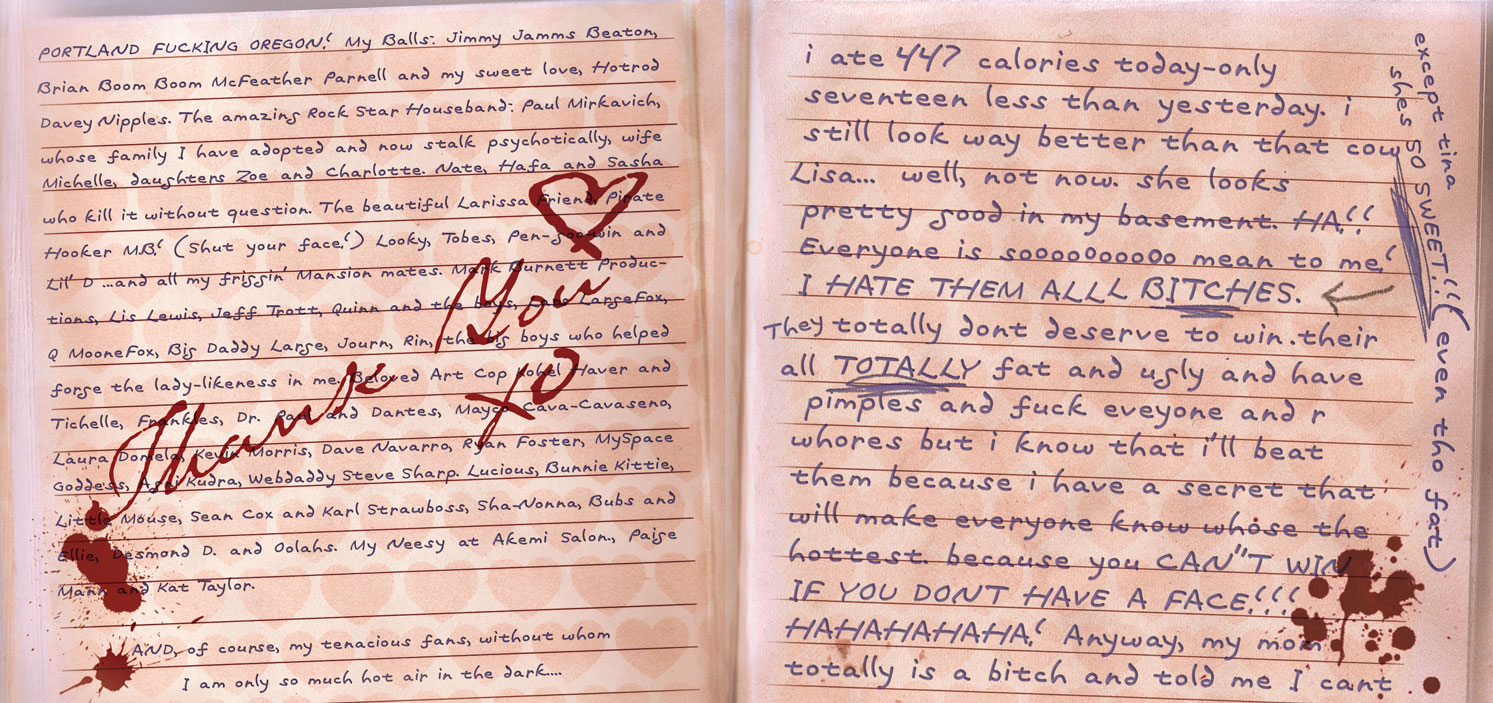 PORTLAND FUCKING OREGON! My Balls: Jimmy Jamms Beaton,
Brian Boom Boom McFeather Parnell and my sweet love, Hotrod
Davey Nipples. The amazing Rock Star Houseband: Paul Mirkavich,
whose family I have adopted and now stalk psychotically, wife
Michelle, daughters Zoe and Charlotte. Nate, Hafa and Sasha
who kill it without question. The beautiful Larissa Friend, Pirate
Hooker MB! (Shut your face!) Looky, Tobes, Pen-goo-win and
Lil' D ...and all my friggin' Mansion mates. Mark Burnett Produc-
tions, Lis Lewis, Jeff Trott, Quinn and the boys, LargeFox,
Q MooneFox, Big Daddy Large, Journ, Rin, the big boys who helped
forge the lady-likeness in me. Beloved Art Cop Haver and
Tichelle, Frankles, Dr. Paul and Dantes, Mayco Cava-Cavaseno,
Laura Domela, Kevin Morris, Dave Navarro, Ryan Foster, MySpace
Goddess, Kudra, Webdaddy Steve Sharp. Lucious, Bunnie Kittie,
Little Mouse, Sean Cox and Karl Strawboss, Sha-Nonna, Bubs and
Ellie, Desmond D. and Oolahs. My Neesy at Akemi Salon., Paige
Mann and Kat Taylor.
AND, of course, my tenacious fans, without whom
I am only so much hot air in the dark....
Thank You
XO
i ate 447 calories today-only
seventeen less than yesterday. i
still look way better than that cow
Lisa... well, not now. she looks
pretty good in my basement. HA!!
Everyone is soooooooooo mean to me!
I HATE THEM ALLL BITCHES.
They totally dont deserve to win.their
all TOTALLY fat and ugly and have
pimples and fuck eveyone and r
whores but i know that i'll beat
them because i have a secret that
will make everyone know whose the
hottest. because you CAN"T WIN
IF YOU DONT HAVE A FACE!!!
HAHAHAHAHA! Anyway, my mom
totally is a bitch and told me I cant
except tina
shes SO SWEET!!! (even tho fat)